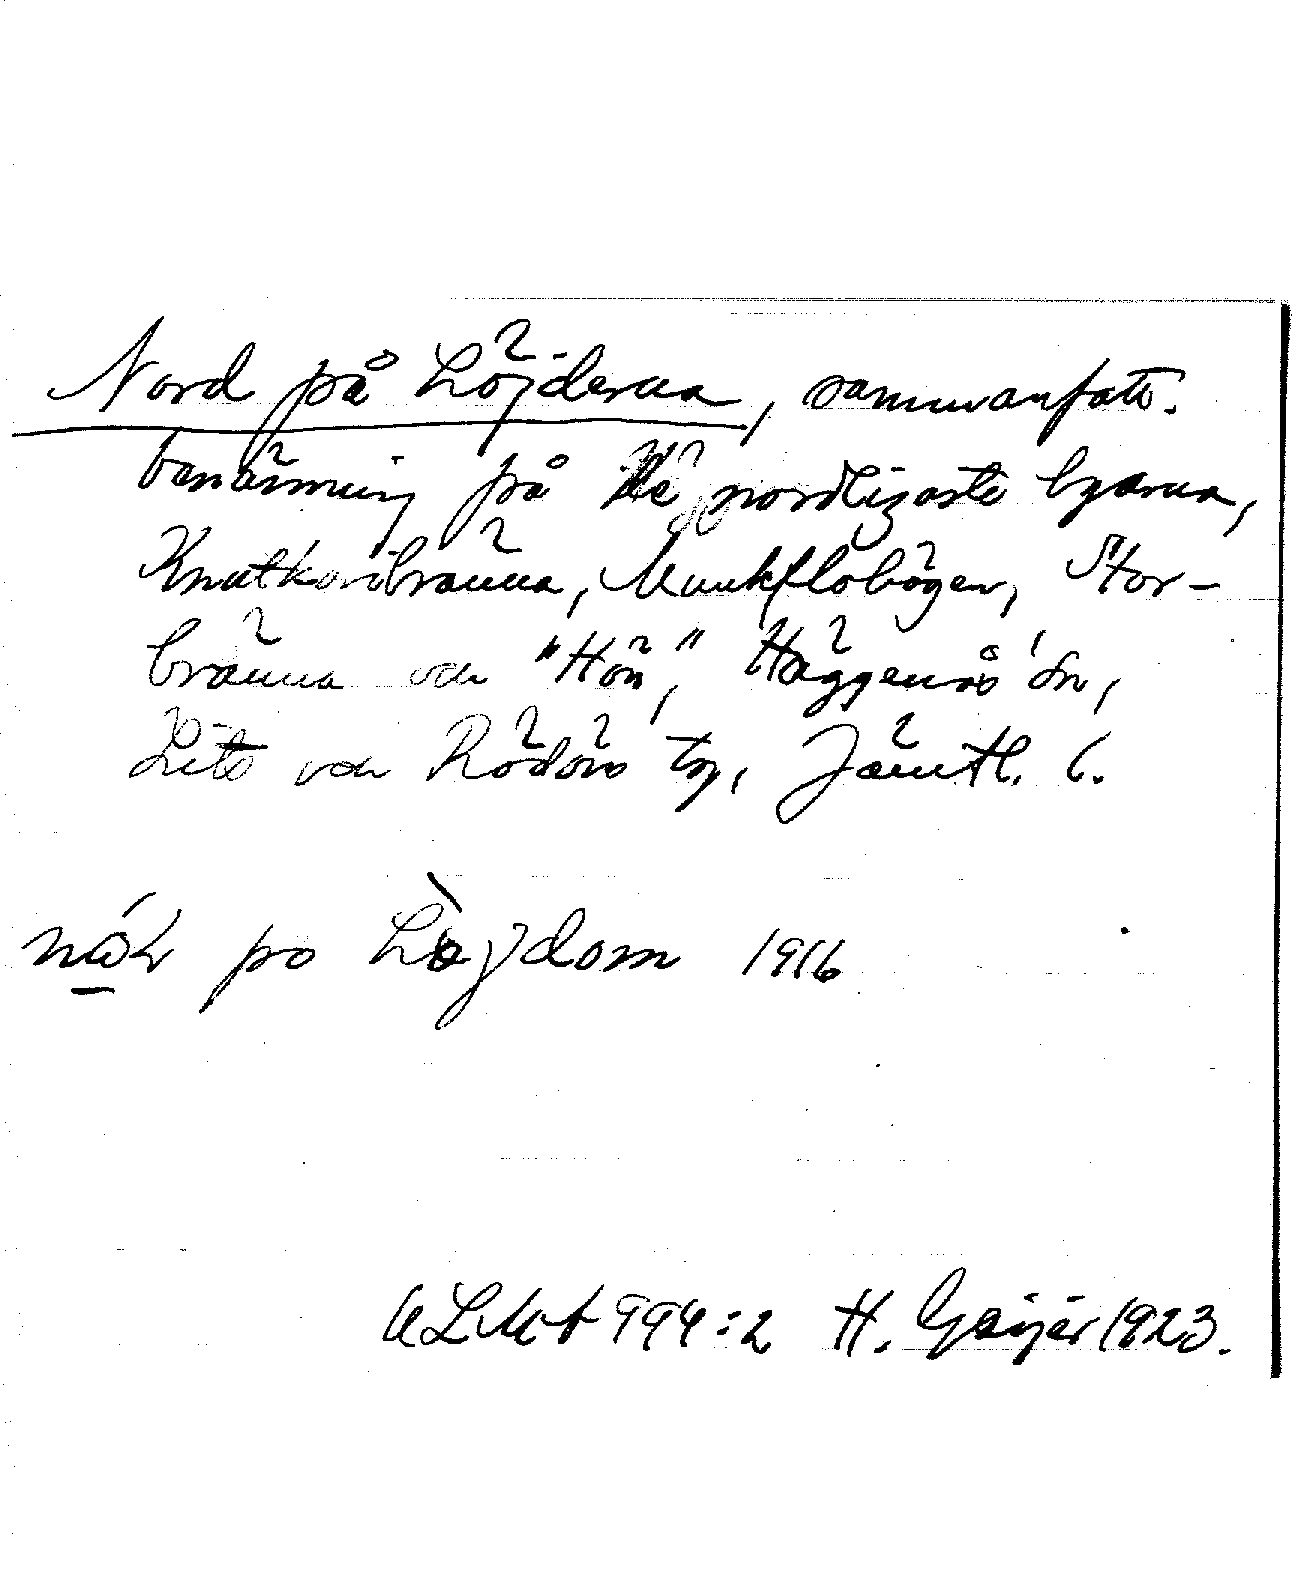 Nord på Löjderna, sammanfatt.
benämning på de nordligaste byarna,
Knutkardbränna, Munkflobögen, Stor-
bränna och "Hön", Häggenås sn,
Lits och Rödöns tg, Jämtl. l.
po Lòjdom 1916
ULMA 994:2 H. Geijer 1923.